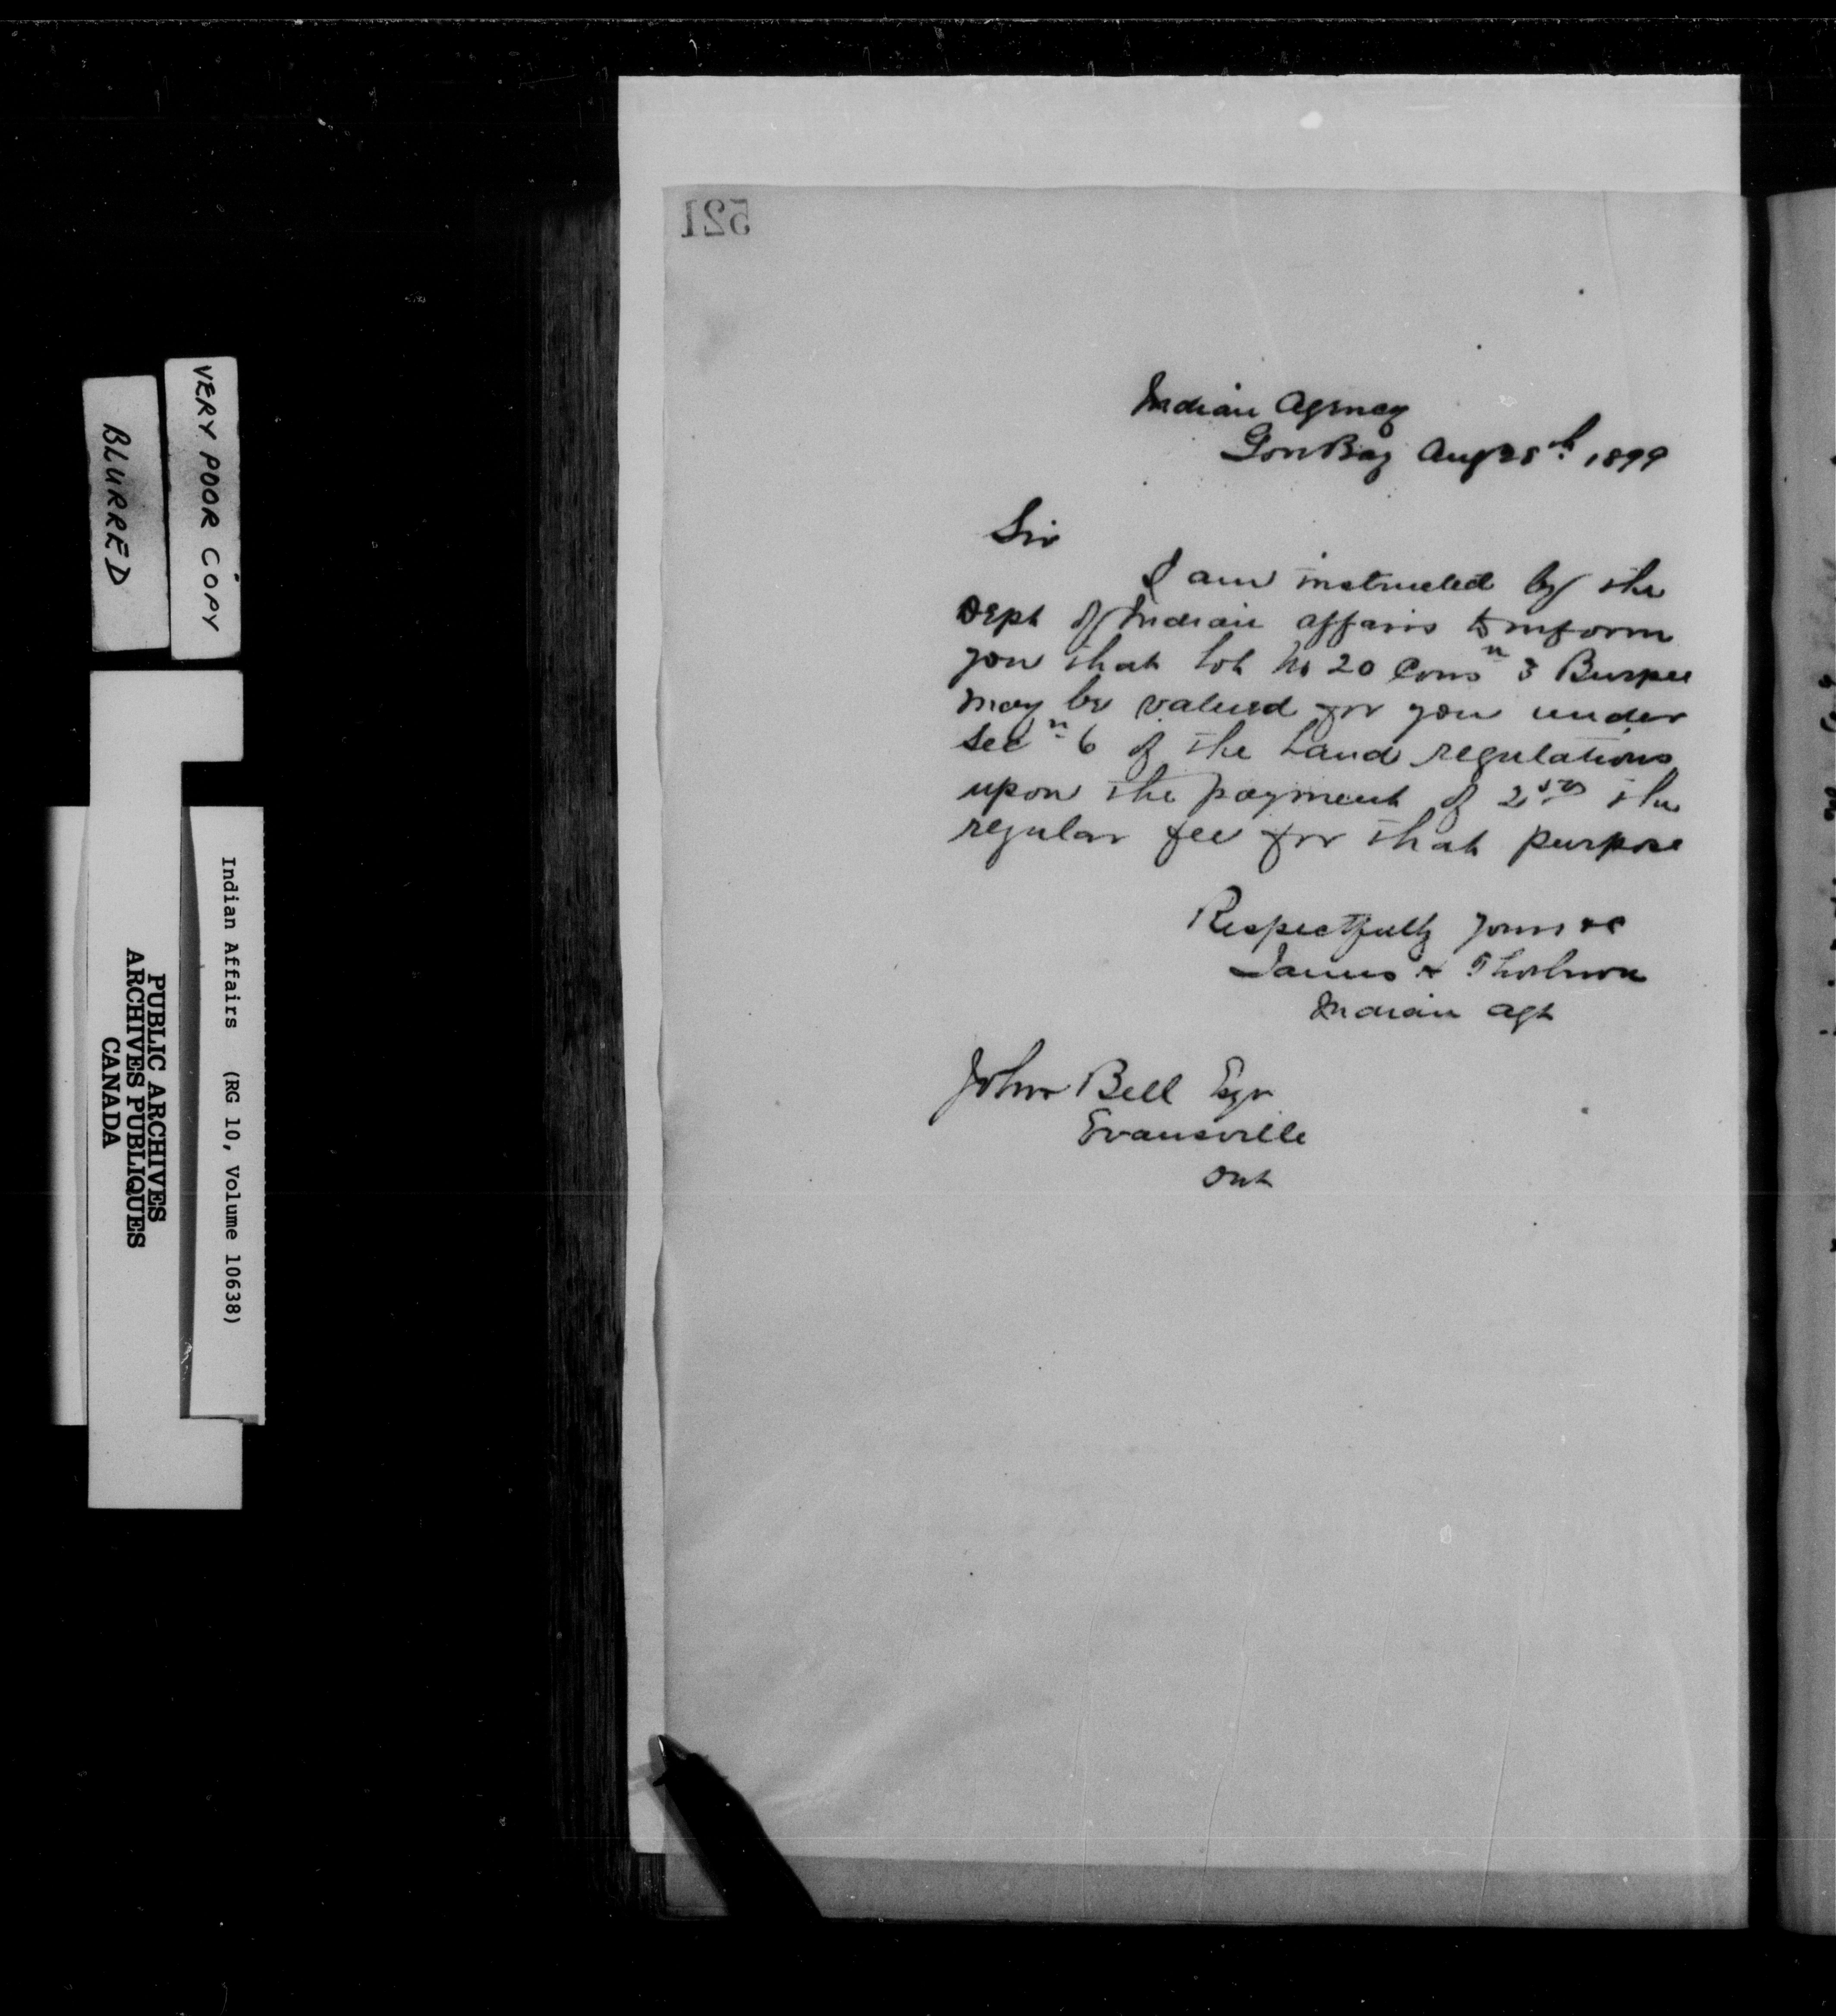 521
Indian Agency
Gore Bay Aug 28th 1899
Sir
I am instructed by the
Dept of Indian affairs to inform
you that Lot No 20 Conn 3 Burpee
may be valued for you under
Secn 6 of the Land regulations
upon the payment of 2.50 the
regular fee for that purpose
Respectfully Yours &c
James H Thorburn
Indian Agt
John Bell Esqr
Evansville
Ont
VERY POOR COPY
BLURRED
Indian Affairs (RG 10, Volume 10638)
PUBLIC ARCHIVES
ARCHIVES PUBLIQUES
CANADA